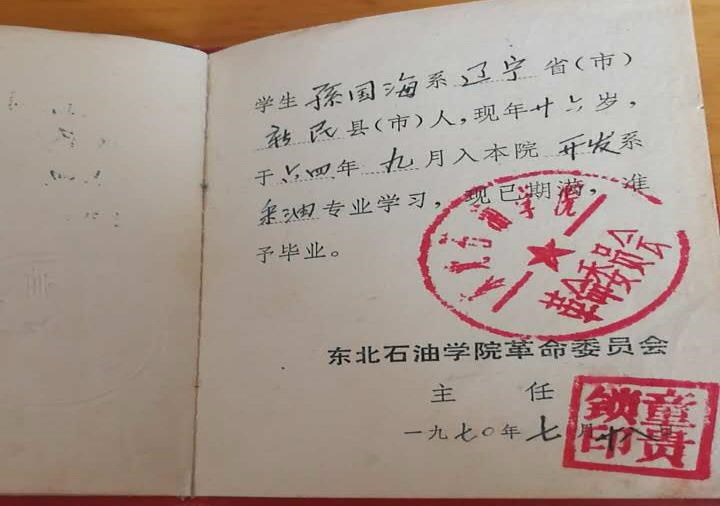 学生 孫国海 系 辽宁 省(市)
新民 县(市)人,现年 廿六 岁,
于 六四 年 九 月入本院 开发 系
采油 专业学习,现已期满,准
予毕业。
东北石油学院
革命委员会
东北石油学院革命委员会
主 任
童贵
锁印
一九七〇年七月十八日